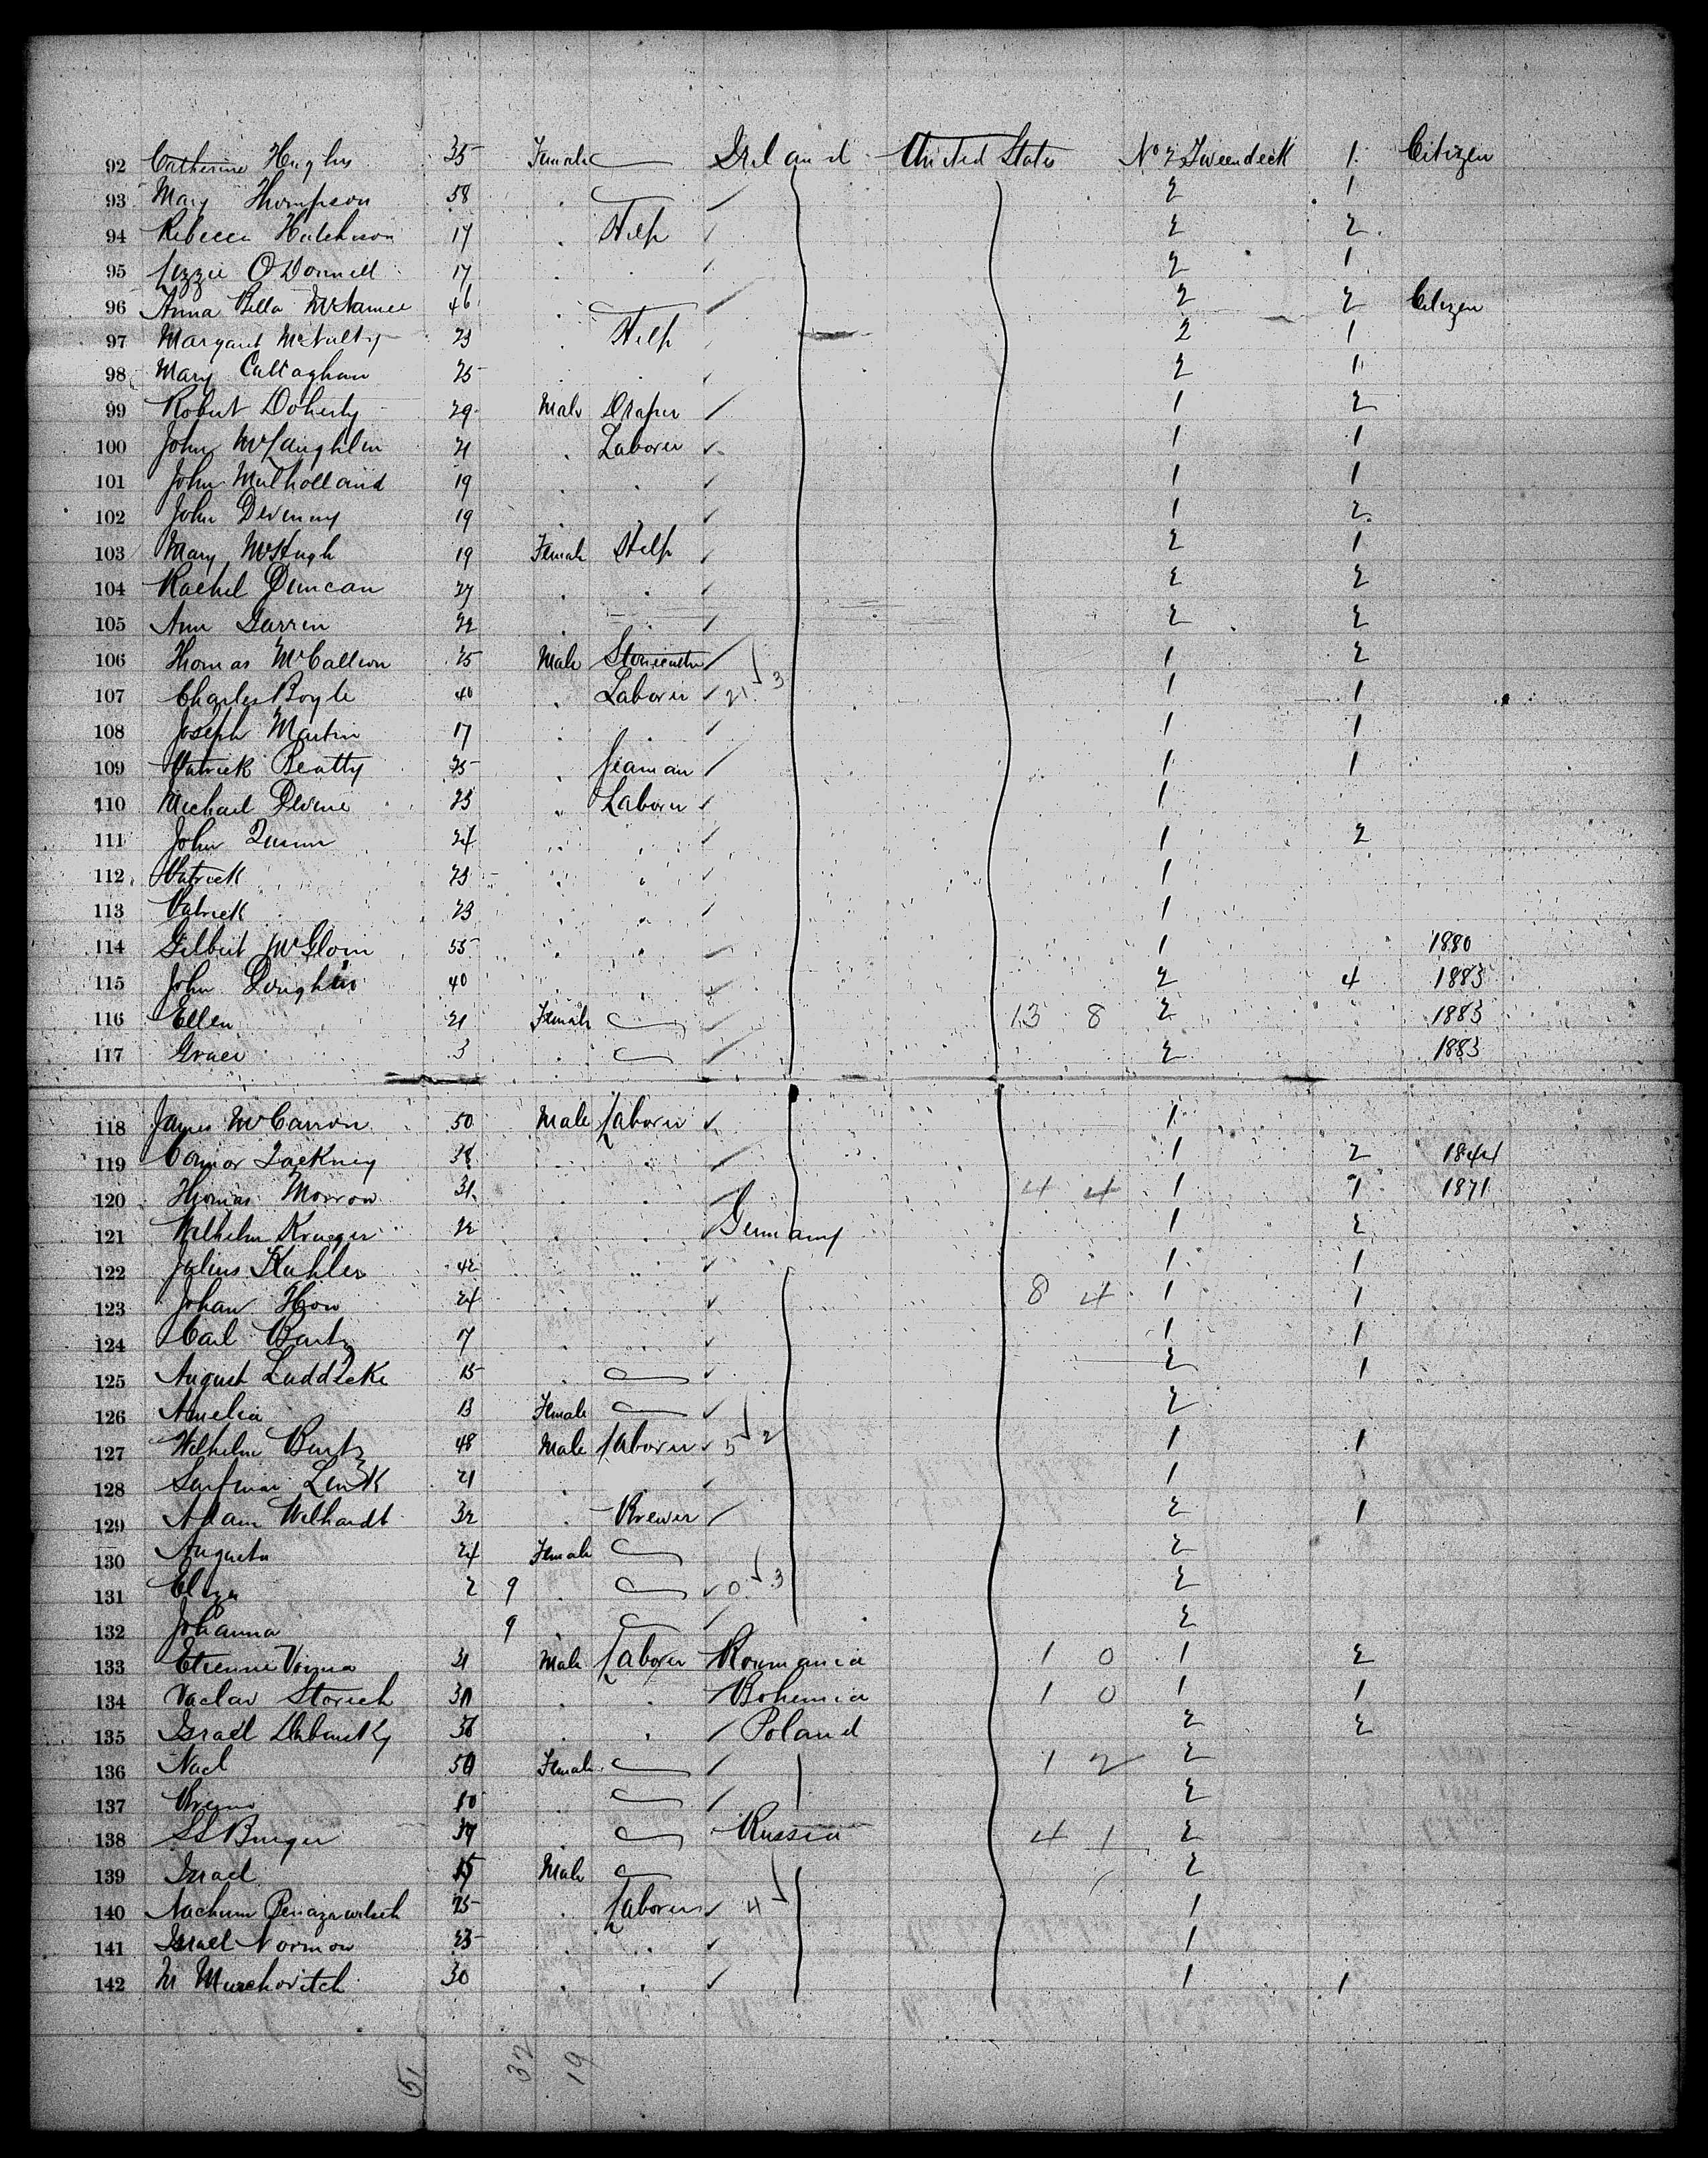 92 Catherine Hughes 35 Female Ireland United States No 2 Tweendeck 1 Citizen
93 Mary Thompson 58 2 1
94 Rebecca Hutchison 17 . Help 2 2
95 Lizzie O'Donnell 17 . 2 1
96 Anna Bella McNamee 46 . 2 2 Citizen
97 Margaret McNulty 23 . Help 2 1
98 Mary Callaghan 25 . . 2 1
99 Robert Doherty 29 Male Draper 1 2
100 John McLaughlin 21 . Laborer 1 1
101 John Mulholland 19 . . 1 1
102 John Devenny 19 . . 1 2
103 Mary McHugh 19 Female Help 2 1
104 Rachel Duncan 27 . . 2 2
105 Ann 22 . . 2 2
106 Thomas McCallion 25 Male Stonecutter 1 2
107 Charles Boyle 40 . Laborer 21 3 1 1
108 Joseph Martin 17 . 1 1
109 Patrick Beatty 25 . Seaman 1 1
110 Michael Devine 23 " Laborer 1
111 John Quinn 24 " " 1 2
112 Patrick 23 " " 1
113 Patrick 23 " " 1
114 Gilbert McGloin 55 " " 1 1880
115 John 40 " " 2 4 1883
116 Ellen 21 Female 13 8 2 1883
117 Grace 3 . 2 1883
118 James McCarron 50 Male Laborer 1
119 Connor 38 . . 1 2 1844
120 Thomas Morrow 31 . . 4 4 1 1 1871
121 Wilhelm Krueger 22 . . Germany 1 2
122 Julius Kahler 42 . . 1 1
123 Johan 24 . . 8 4 1 1
124 Carl Bartz 17 . . 1 1
125 August Luddecke 15 2 1
126 Amelia 13 Female 2
127 Wilhelm Bartz 48 Male Laborer 5 2 1 1
128 21 . 1
129 Adam Welhardt 32 . Brewer 2 1
130 Augusta 24 Female 2
131 Eliza 2 9 . 0 3 2
132 Johanna 9 2
133 Etienne 31 Male Laborer Roumania 1 0 1 2
134 Vaclav 30 . . Bohemia 1 0 1 1
135 Israel Dubinsky 36 . . Poland 2 2
136 50 Female 1 2 2
137 10 . 2
138 Burger 39 . Russia 4 1 2
139 Israel 15 Male 2
140 Nachum 25 . Laborer 4 1
141 Israel 23 . . 1
142 M 30 . . 1 1
51 32 19